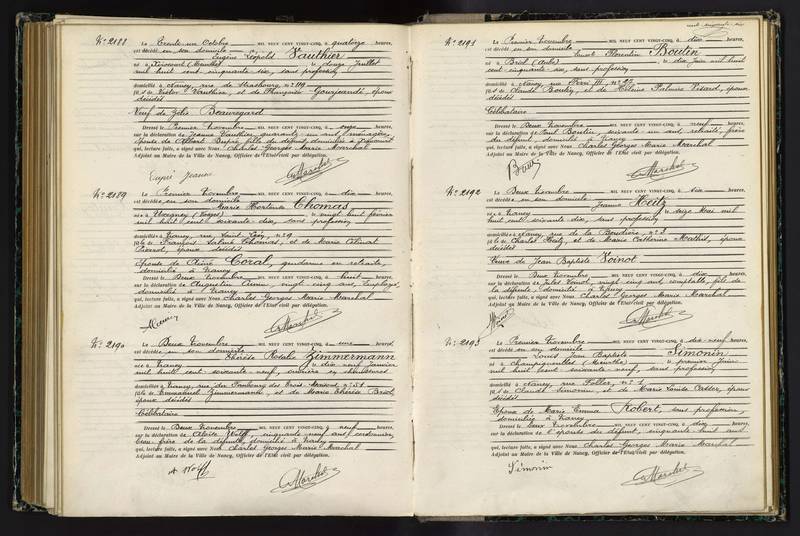 N° 2188 Le Trente-un Octobre MIL NEUF CENT VINGT-CINQ, à quatorze heures,
est décédé en son domicile
Eugène Léopold Vauthier
né à (Meurthe) le douze Juillet
mil huit cent cinquante six, sans profession
domicilié à Nancy, rue de Strasbourg n° 119
fils de Victor Vauthier, et de Françoise époux
décédés
Veuf de Zélie Beauregard
Dressé le Premier Novembre MIL NEUF CENT VINGT-CINQ, à onze heures,
sur la déclaration de Jeanne Vauthier, quarante un ans, ménagère,
épouse de Dupré, fille du défunt, domiciliée à
qui, lecture faite, a signé avec Nous Charles Georges Marie Marchal
Adjoint au Maire de la Ville de Nancy, Officier de l'Etat civil par délégation.
Dupré Jeanne
N° 2189 Le Premier Novembre MIL NEUF CENT VINGT-CINQ, à dix heures,
est décédée en son domicile
Marie Hortense Thomas
née à (Vosges) le vingt huit février
mil huit cent soixante dix, sans profession
domiciliée à Nancy, rue Saint n° 9
fille de François Thomas, et de Marie
Pierrot, époux décédés
Epouse de Aimé Coral, gendarme en retraite,
domicilié à Nancy
Dressé le Deux Novembre MIL NEUF CENT VINGT-CINQ, à huit heures,
sur la déclaration de Augustin vingt cinq ans, employé,
domicilié à Nancy
qui, lecture faite, a signé avec Nous Charles Georges Marie Marchal
Adjoint au Maire de la Ville de Nancy, Officier de l'Etat civil par délégation.
N° 2190 Le Deux Novembre MIL NEUF CENT VINGT-CINQ, à une heures,
est décédée en son domicile
Thérèse Rosalie Zimmermann
née à Nancy le dix neuf Janvier
mil huit cent soixante neuf, ouvrière en
domiciliée à Nancy, rue du Faubourg des Trois Maisons n° 51
fille de Emmanuel Zimmermann, et de Marie Thérèse
époux décédés
Célibataire
Dressé le Deux Novembre MIL NEUF CENT VINGT-CINQ, à neuf heures,
sur la déclaration de Aloïse Wolff, cinquante neuf ans, cordonnier,
beau frère de la défunte, domicilié à Nancy
qui, lecture faite, a signé avec Nous Charles Georges Marie Marchal
Adjoint au Maire de la Ville de Nancy, Officier de l'Etat civil par délégation.
A Wolff
N° 2191 Le Premier Novembre MIL NEUF CENT VINGT-CINQ, à dix heures,
est décédé en son domicile
Ernest Florentin Boutin
né à Briel (Aube) le dix Juin mil huit
cent cinquante six, sans profession
domicilié à Nancy, rue
fils de Claude Boutin, et de Hélène Palmire époux
décédés
Célibataire
Dressé le Deux Novembre MIL NEUF CENT VINGT-CINQ, à neuf heures,
sur la déclaration de Paul Boutin, soixante un ans, retraité, frère
du défunt, domicilié à Nancy
qui, lecture faite, a signé avec Nous Charles Georges Marie Marchal
Adjoint au Maire de la Ville de Nancy, Officier de l'Etat civil par délégation.
N° 2192 Le Deux Novembre MIL NEUF CENT VINGT-CINQ, à heures,
est décédée en son domicile
Jeanne Heitz
née à Nancy le seize Mai mil
huit cent soixante dix, sans profession
domiciliée à Nancy, rue de la
fille de Charles Heitz, et de Marie Catherine Mathis, époux
décédés
Veuve de Jean Baptiste Voinot
Dressé le Deux Novembre MIL NEUF CENT VINGT-CINQ, à dix heures,
sur la déclaration de Jules Voinot, vingt cinq ans, comptable, fils de
la défunte, domicilié à Nancy
qui, lecture faite, a signé avec Nous Charles Georges Marie Marchal
Adjoint au Maire de la Ville de Nancy, Officier de l'Etat civil par délégation.
N° 2193 Le Premier Novembre MIL NEUF CENT VINGT-CINQ, à dix neuf heures,
est décédé en son domicile
Louis Jean Baptiste Simonin
né à Champigneulles (Meurthe) le premier Janvier
mil huit cent soixante neuf, sans profession
domicilié à Nancy, rue
fils de Claude Simonin, et de Marie Louise époux
décédés
Epoux de Marie Emma Robert, sans profession,
domiciliée à Nancy
Dressé le Deux Novembre MIL NEUF CENT VINGT-CINQ, à dix heures,
sur la déclaration de l'épouse du défunt, cinquante huit ans
qui, lecture faite, a signé avec Nous Charles Georges Marie Marchal
Adjoint au Maire de la Ville de Nancy, Officier de l'Etat civil par délégation.
Simonin